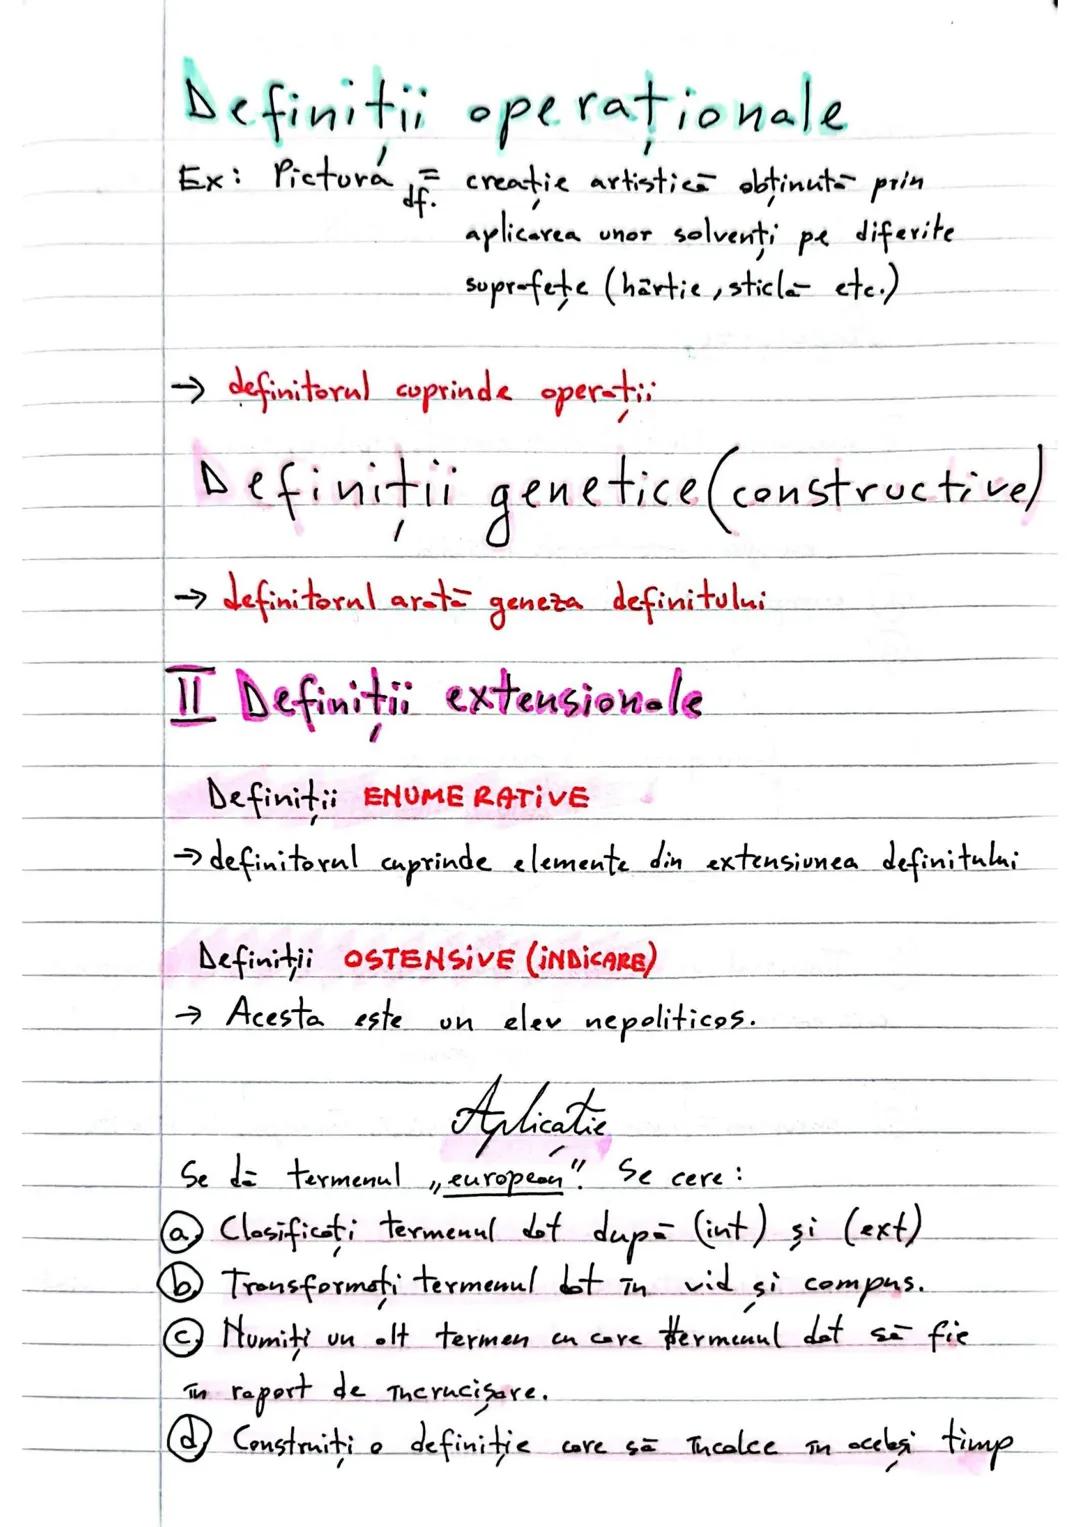 Definiții operaționale
Ex: Pictură =df. creație artistică obținută prin
aplicarea unor solvenți pe diferite
suprafețe (hârtie, sticlă etc.)
→ definitorul cuprinde operații
Definiții genetice (constructive)
→ definitorul arată geneza definitului
II Definiții extensionale
Definiții ENUMERATIVE
→ definitorul cuprinde elemente din extensiunea definitului
Definiții OSTENSIVE (INDICARE)
→ Acesta este un elev nepoliticos.
Aplicatie
Se dă termenul „european". Se cere:
a) Clasificați termenul dat după (int) și (ext)
b) Transformați termenul dat în vid și compus.
c) Numiți un alt termen cu care termenul dat să fie
în raport de încrucișare.
d) Construiți o definiție care să încalce în același timp